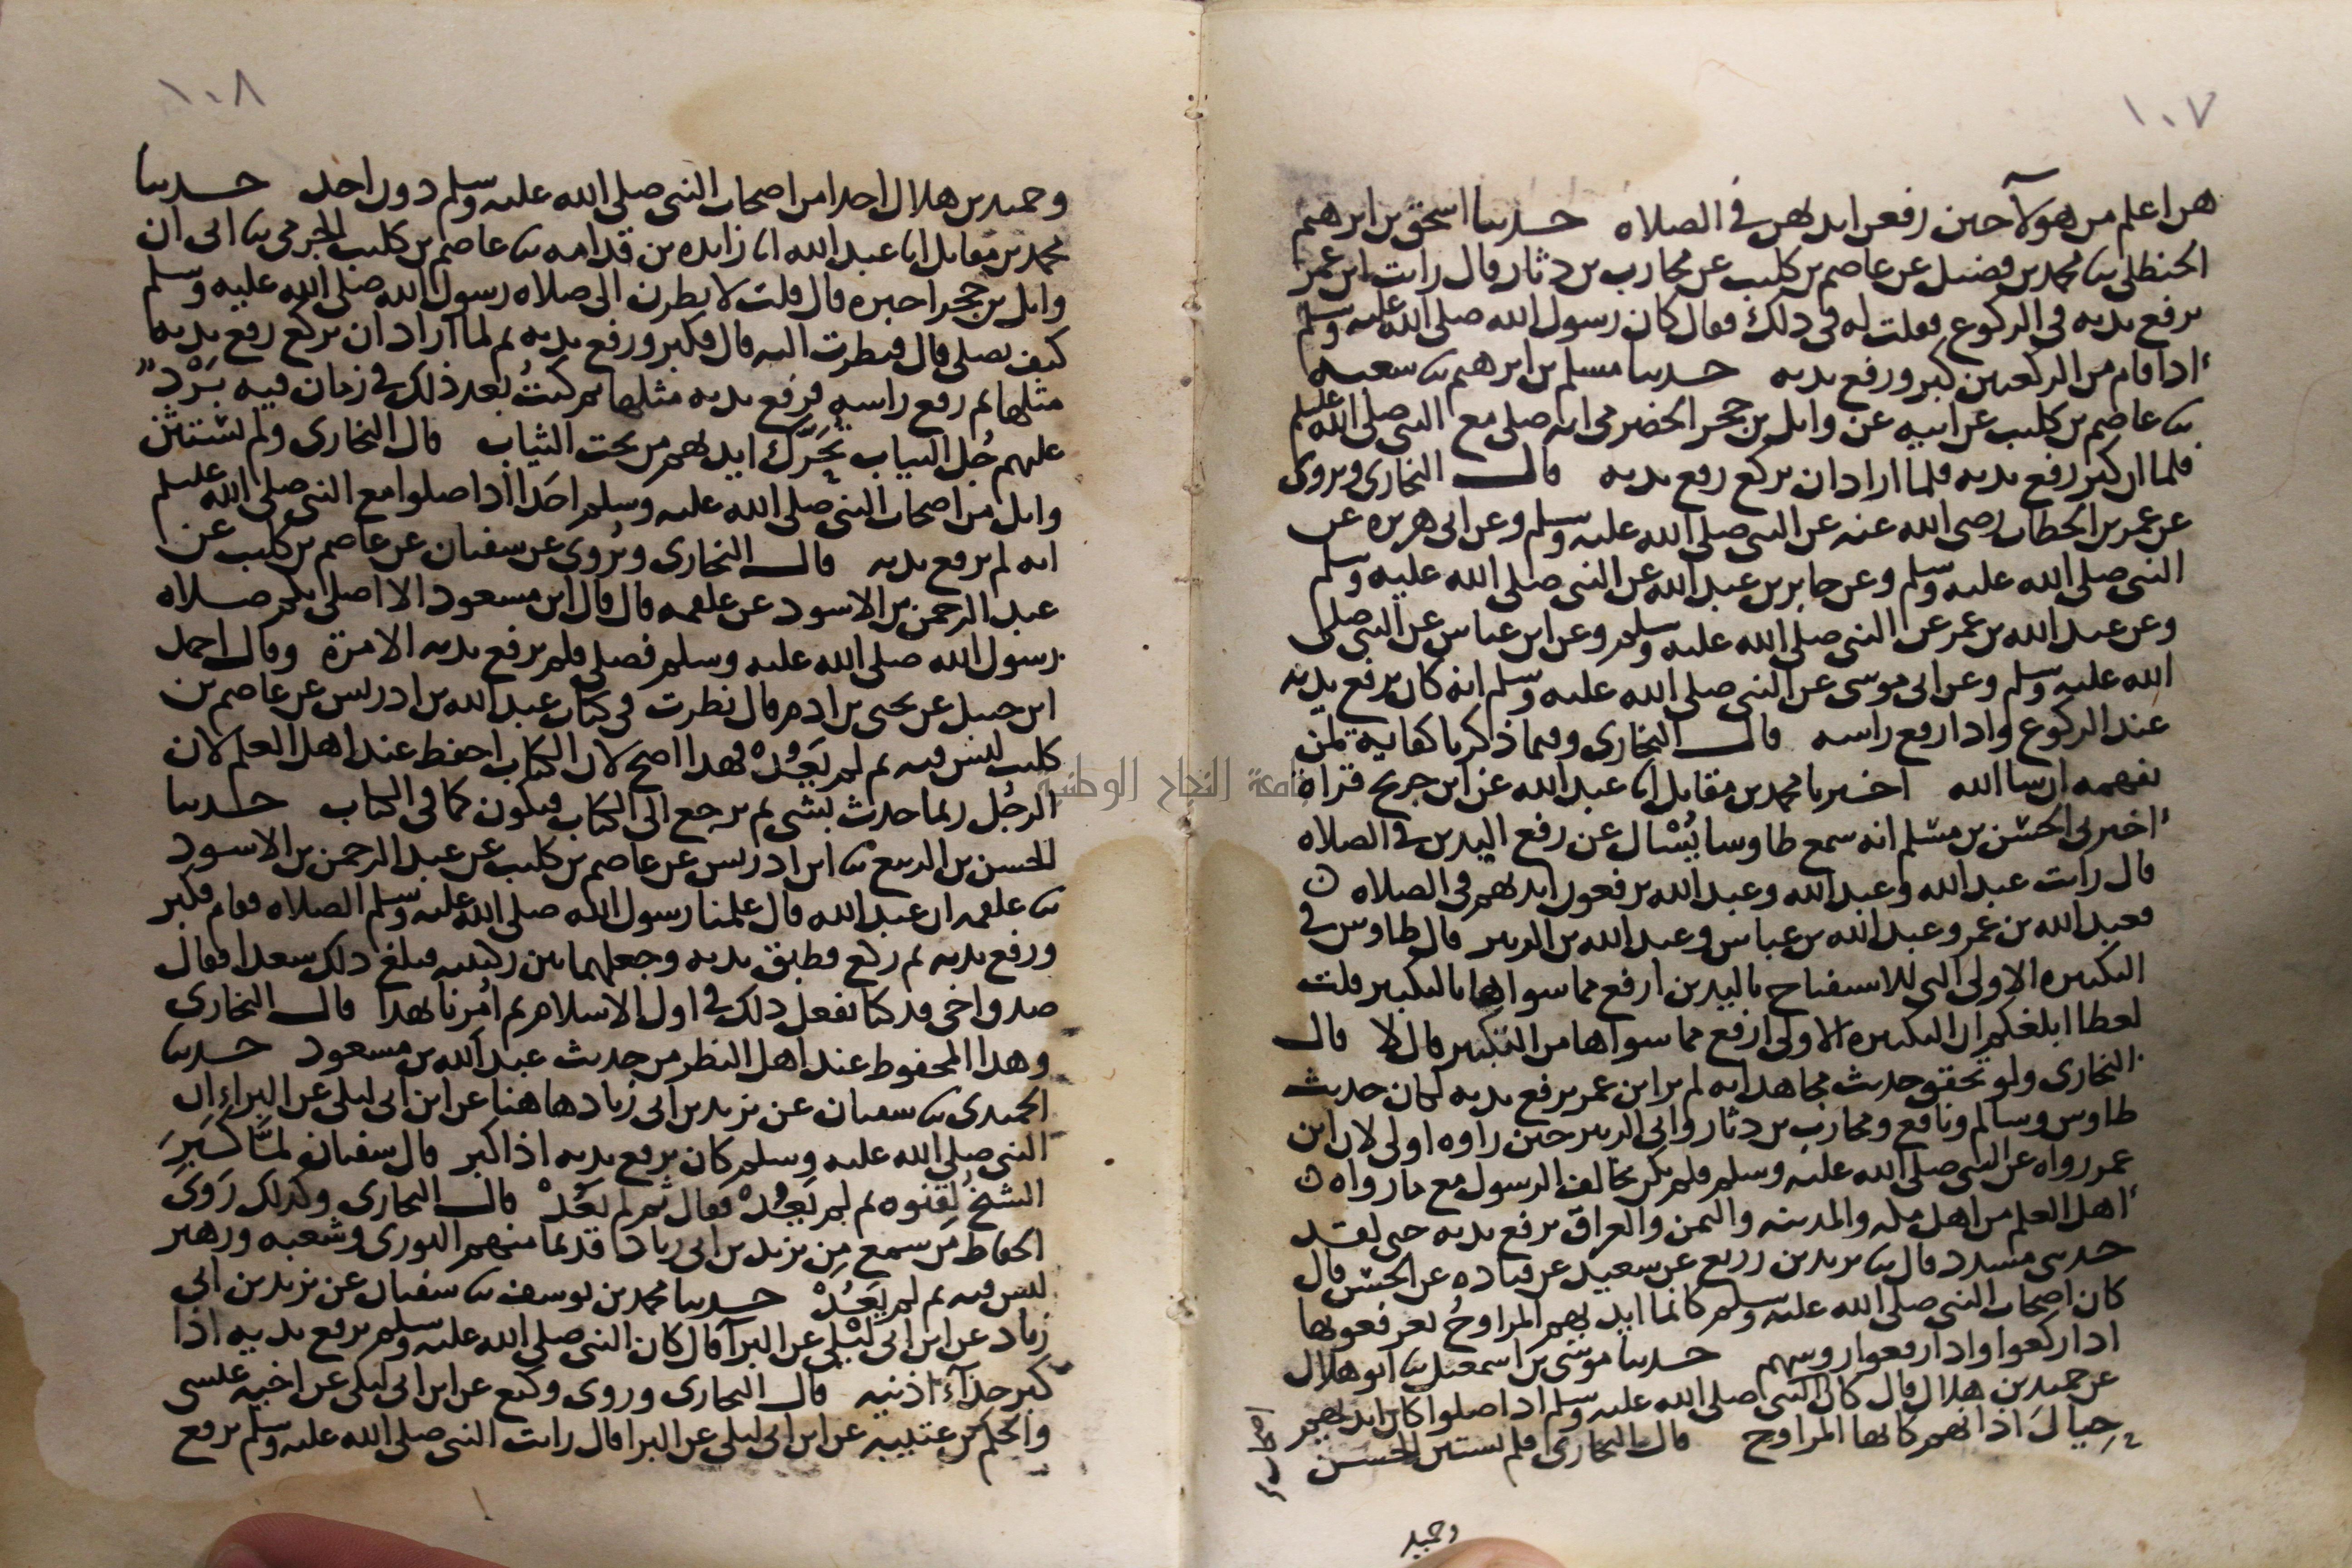 ١٠٧
هن اعلم من هولآ حين رفعن ايديهن في الصلاه حدثنا اسحق بن ابرهيم
الحنظلي ثنا محمد بن فضيل عن عاصم بن كليب عن محارب بن دثار قال رايت ابن عمر
يرفع يديه في الركوع فقلت له في ذلك فقال كان رسول الله صلى الله عليه وسلم
اذا قام من الركعتين كبر ورفع يديه حدثنا مسلم بن ابرهيم ثنا شعبه
ثنا عاصم بن كليب عن ابيه عن وايل بن حجر الحضرمي انه صلى مع النبي صلى الله عليه وسلم
فلما ان كبر رفع يديه فلما اراد ان يركع رفع يديه قال البخاري ويروى
عن عمر بن الخطاب رضي الله عنه عن النبي صلى الله عليه وسلم وعن ابي هريره عن
النبي صلى الله عليه وسلم وعن جابر بن عبد الله عن النبي صلى الله عليه وسلم
وعن عبد الله بن عمر عن النبي صلى الله عليه وسلم وعن ابن عباس عن النبي صلى
الله عليه وسلم وعن ابي موسى عن النبي صلى الله عليه وسلم انه كان يرفع يديه
عند الركوع واذا رفع راسه قال البخاري وفيما ذكرنا كفاية لمن
يفهمه ان شا الله اخبرنا محمد بن مقاتل انا عبد الله عن ابن جريج قراة
اخبرني الحسن بن مسلم انه سمع طاوسا يُسْال عن رفع اليدين في الصلاه
قال رايت عبد الله وعبد الله وعبد الله يرفعون ايديهم في الصلاه ن
فعبد الله بن عمر وعبد الله بن عباس وعبد الله بن الزبير قال طاوس في
التكبيره الاولى التي للاستفتاح باليدين ارفع مما سواها بالتكبير قلت
لعطا ابلغكم ان التكبيره الاولى ارفع مما سواها من التكبير قال لا قال
البخاري ولو تحقق حديث مجاهد انه لم ير ابن عمر يرفع يديه لكان حديث
طاوس وسالم ونافع ومحارب بن دثار وابي الزبير حين راوه اولى لان ابن
عمر رواه عن النبي صلى الله عليه وسلم فلم يكن يخالف الرسول مع ما رواه ن
اهل العلم من اهل مكه والمدينه واليمن والعراق يرفع يديه حتى لقد
حدثني مسدد قال ثنا يزيد بن زريع عن سعيد عن قتاده عن الحسن قال
كان اصحاب النبي صلى الله عليه وسلم كانما ايديهم المراوحُ يرفعونها
اذا ركعوا واذا رفعوا روسهم حدثنا موسى بن اسمعيل ثنا ابو هلال
عن حميد بن هلال قال كان النبي صلى الله عليه وسلم اذا صلوا كان ايديهم
حيالَ اذانهم كانها المراوح قال البخاري فلم يستثن الحسن
اصحاب
وحميد
١٠٨
وحميد بن هلال احدا من اصحاب النبي صلى الله عليه وسلم دون احد حدثنا
محمد بن مقاتل انا عبد الله انا زايده بن قدامه ثنا عاصم بن كليب الجرمي ثنا ابي ان
وايل بن حجر اخبره قال قلت لانظرن الى صلاه رسول الله صلى الله عليه وسلم
كيف يصلي قال فنظرت اليه قال فكبر ورفع يديه ثم لما اراد ان يركع رفع يديه
مثلها ثم رفع راسه فرفع يديه مثلها ثم كنتُ بعد ذلك في زمان فيه بَرْدٌ
عليهم جُل الثياب تُحَرَّك ايديهم من تحت الثياب قال البخاري ولم يستثن
وايل من اصحاب النبي صلى الله عليه وسلم احَدا اذا صلوا مع النبي صلى الله عليه وسلم
انه لم يرفع يديه قال البخاري ويُروى عن سفيان عن عاصم بن كليب عن
عبد الرحمن بن الاسود عن علقمه قال قال ابن مسعود الا اصلي بكم صلاه
رسول الله صلى الله عليه وسلم فصلى فلم يرفع يديه الا مرة وقال احمد
ابن حنبل عن يحيى بن ادم قال نظرت في كتاب عبد الله بن ادريس عن عاصم بن
كليب ليس فيه ثم لم يَعُدْ فهذا اصح لان الكتاب احفظ عند اهل العلم لان
الرجُل ربما حدث بشي ثم يرجع الى الكتاب فيكون كما في الكتاب حدثنا
الحسن بن الربيع ثنا ابن ادريس عن عاصم بن كليب عن عبد الرحمن بن الاسود
ثنا علقمه ان عبد الله قال علمنا رسول الله صلى الله عليه وسلم الصلاه فقام فكبر
ورفع يديه ثم ركع فطبق يديه وجعلهما بين ركبتيه فبلغ ذلك سعدا فقال
صدق اخي قد كنا نفعل ذلك في اول الاسلام ثم اُمرنا بهذا قال البخاري
وهذا المحفوظ عند اهل النظر من حديث عبد الله بن مسعود حدثنا
الحميدي ثنا سفيان عن يزيد بن ابي زياد هاهنا عن ابن ابي ليلى عن البراء ان
النبي صلى الله عليه وسلم كان يرفع يديه اذا كبر قال سفيان لمَّا كَبِرَ
الشيخُ لقنوه ثم لم يَعُدْ فقال ثم لم يَعُدْ قال البخاري وكذلك رَوَى
الحفاظ مَن سمع مِن يزيد بن ابي زياد قديما منهم الثوري وشعبه وزهير
ليس فيه ثم لم يَعُدْ حدثنا محمد بن يوسف ثنا سفيان عن يزيد بن ابي
زياد عن ابن ابي ليْلى عن البرآ قال كان النبي صلى الله عليه وسلم يرفع يديه اذا
كبر حذآءَ اذنيه قال البخاري وروى وكيع عن ابن ابي ليلى عن اخيه عيسى
والحكم بن عتيبه عن ابن ابي ليلى عن البرا قال رايت النبي صلى الله عليه وسلم يرفع
جامعة النجاح الوطنية